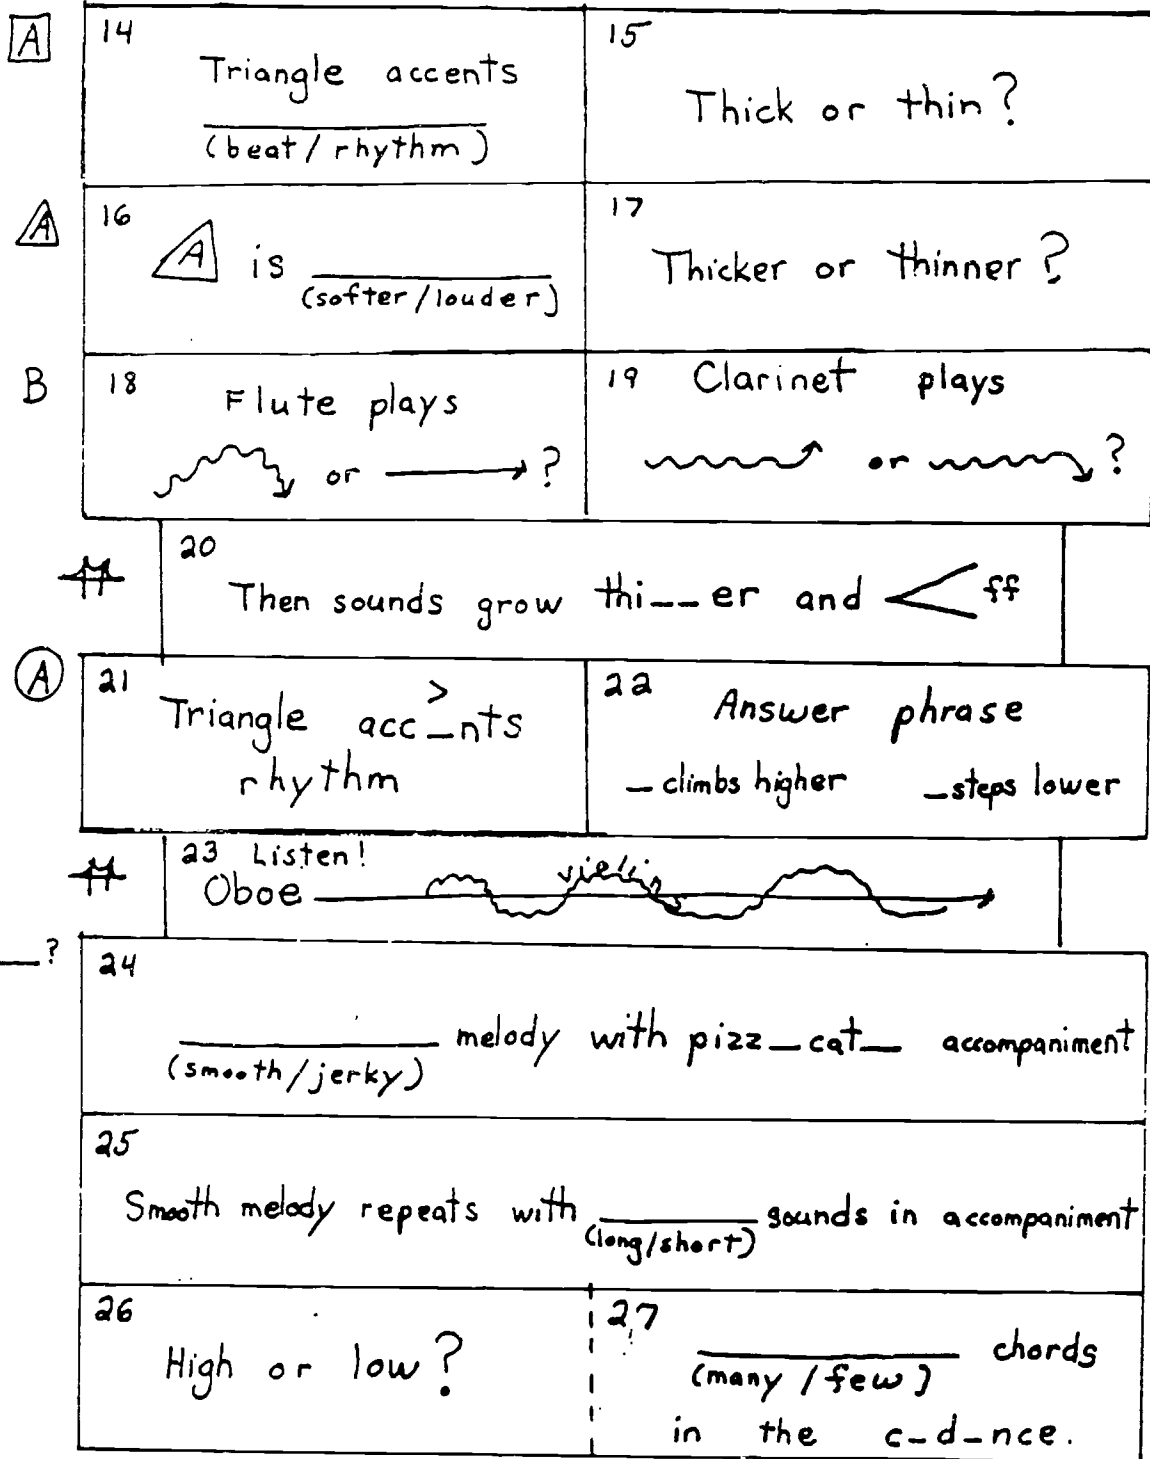 A
14
Triangle accents
____ (beat / rhythm)
15
Thick or thin?
A
16
A is ____ (softer / louder)
17
Thicker or thinner?
B
18
Flute plays
or ?
19
Clarinet plays
or ?
20
Then sounds grow thi__er and < ff
A
21
Triangle acc_nts
>
rhythm
22
Answer phrase
_climbs higher _steps lower
23 Listen!
Oboe violin
__?
24
____ melody with pizz_cat_ accompaniment
(smooth/jerky)
25
Smooth melody repeats with ____ sounds in accompaniment
(long/short)
26
High or low?
27
____ chords
(many / few)
in the c_d_nce.